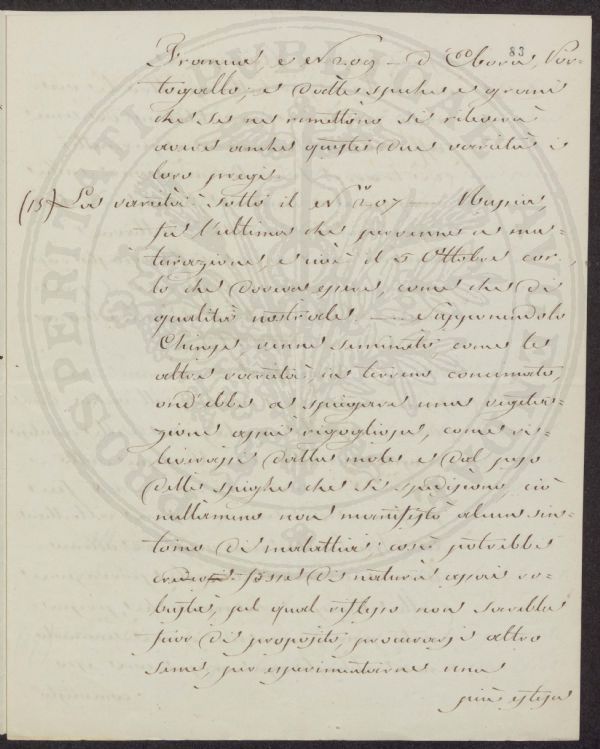 83
Francia, e N 209 - d'Evora, Por-
togallo; e dalle spiche e grani
che se ne rimettono si rileverà
avere anche queste due varietà i
loro pregi.
(15) La varietà sotto il N.r 207 —
fu l'ultima che pervenne a ma-
turazione, e cioè il 5 Ottobre cor.,
lo che doveva essere, come che di
qualità nostrale. — Supponendola
Chinese, venne seminata, come le
altre varietà in terreno concimato,
ond'ebbe a spiegare una vegeta-
zione assai rigogliosa, come ri-
leverassi dalla mole e dal peso
delle spighe che si spediscono, ciò
nullameno non manifestò alcun sin-
tomo di malattia: così potrebbe
fosse di natura assai ro-
busta, pel qual riflesso non sarebbe
fuor di proposito, procurarsi altro
seme, per esperimentarne una
più estesa
PROSPERITATI PUBLICAE